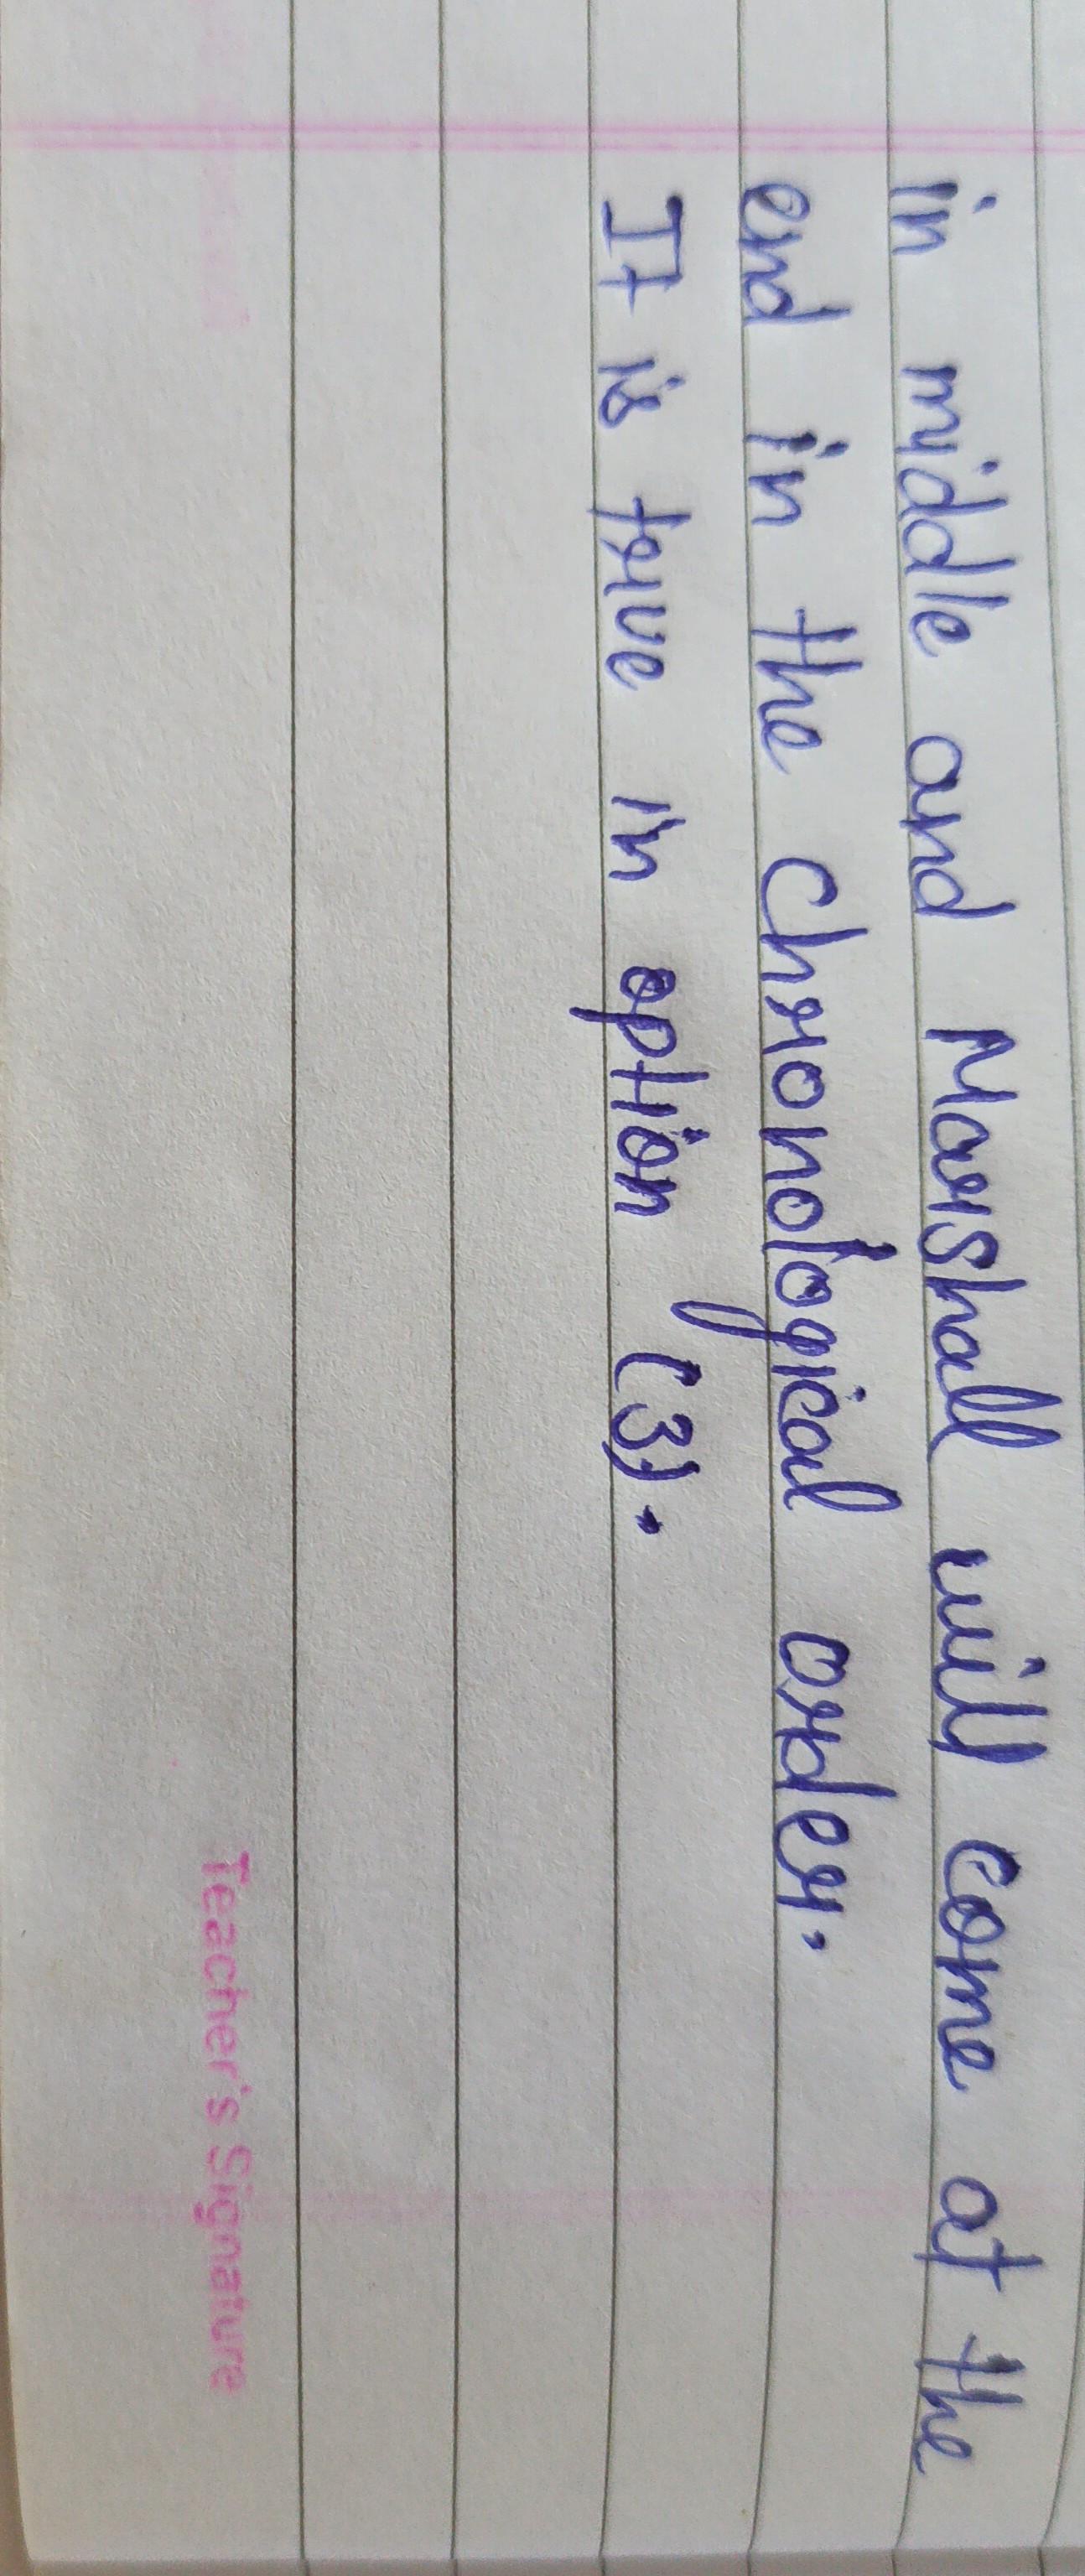 in middle and Marshall will come at the
end in the chronological order.
It is true in option (3).
Teacher's Signature